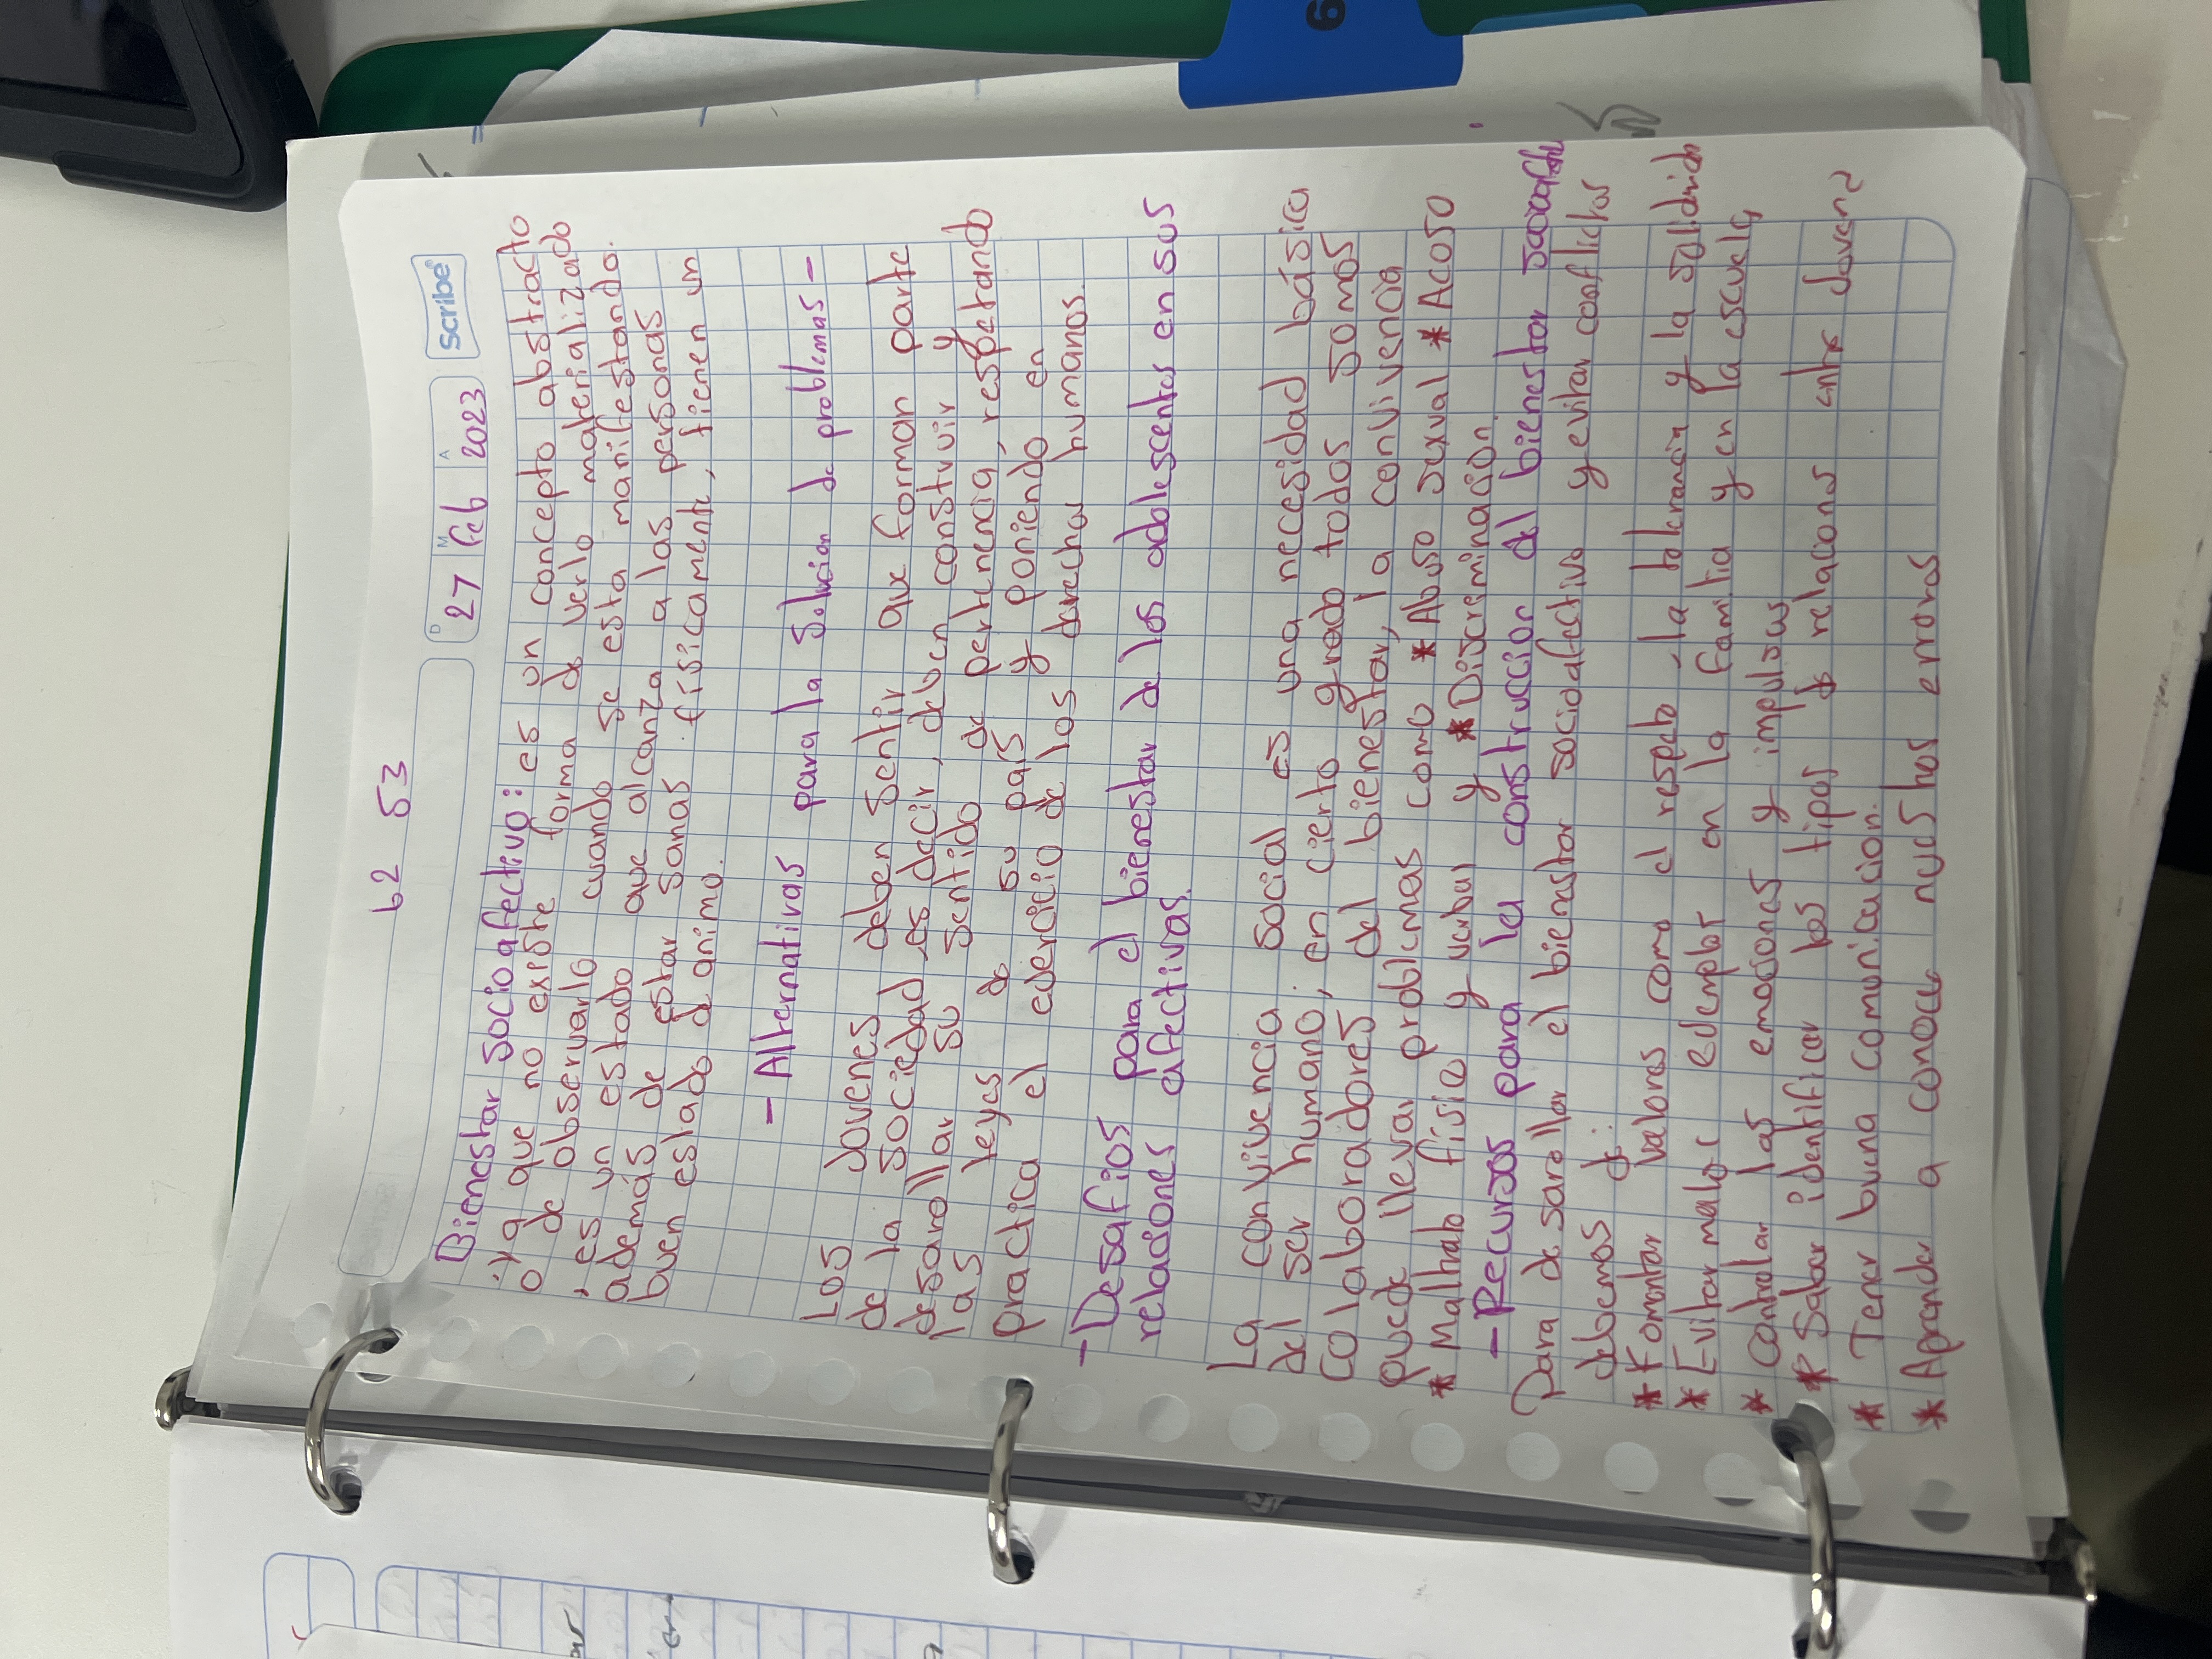 6
b2 53
D M A
27 Feb 2023
scribe
Bienestar socioafectivo: es un concepto abstracto
ya que no existe forma de verlo materializado
o de observarlo cuando se esta manifestando.
es un estado que alcanza a las personas
además de estar sanas físicamente, tienen un
buen estado de animo.
- Alternativas para la solucion de problemas -
Los Jovenes deben sentir que forman parte
de la sociedad, es decir, deben construir y
desarrollar su sentido de pertenencia, respetando
las leyes de su país y poniendo en
practica el ejercicio de los derechos humanos.
- Desafios para el bienestar de los adolescentes en sus
relaciones afectivas.
La convivencia social es una necesidad básica
del ser humano, en cierto grado todos somos
colaboradores del bienestar, la convivencia
puede llevar problemas como * Abuso sexual * Acoso
* Maltrato físico y verbal y * Discriminación.
- Recursos para la construccion del bienestar
Para desarollar el bienestar socioafectivo y evitar conflictos
debemos de:
* Fomentar valores como el respeto, la tolerancia y la
* Evitar malos ejemplos en la familia y en la escuela
* Controlar las emociones y impulsos
* Saber identificar los tipos de relaciones entre Jovenes
* Tener buena comunicacion.
* Aprender a conocer nuestros errores